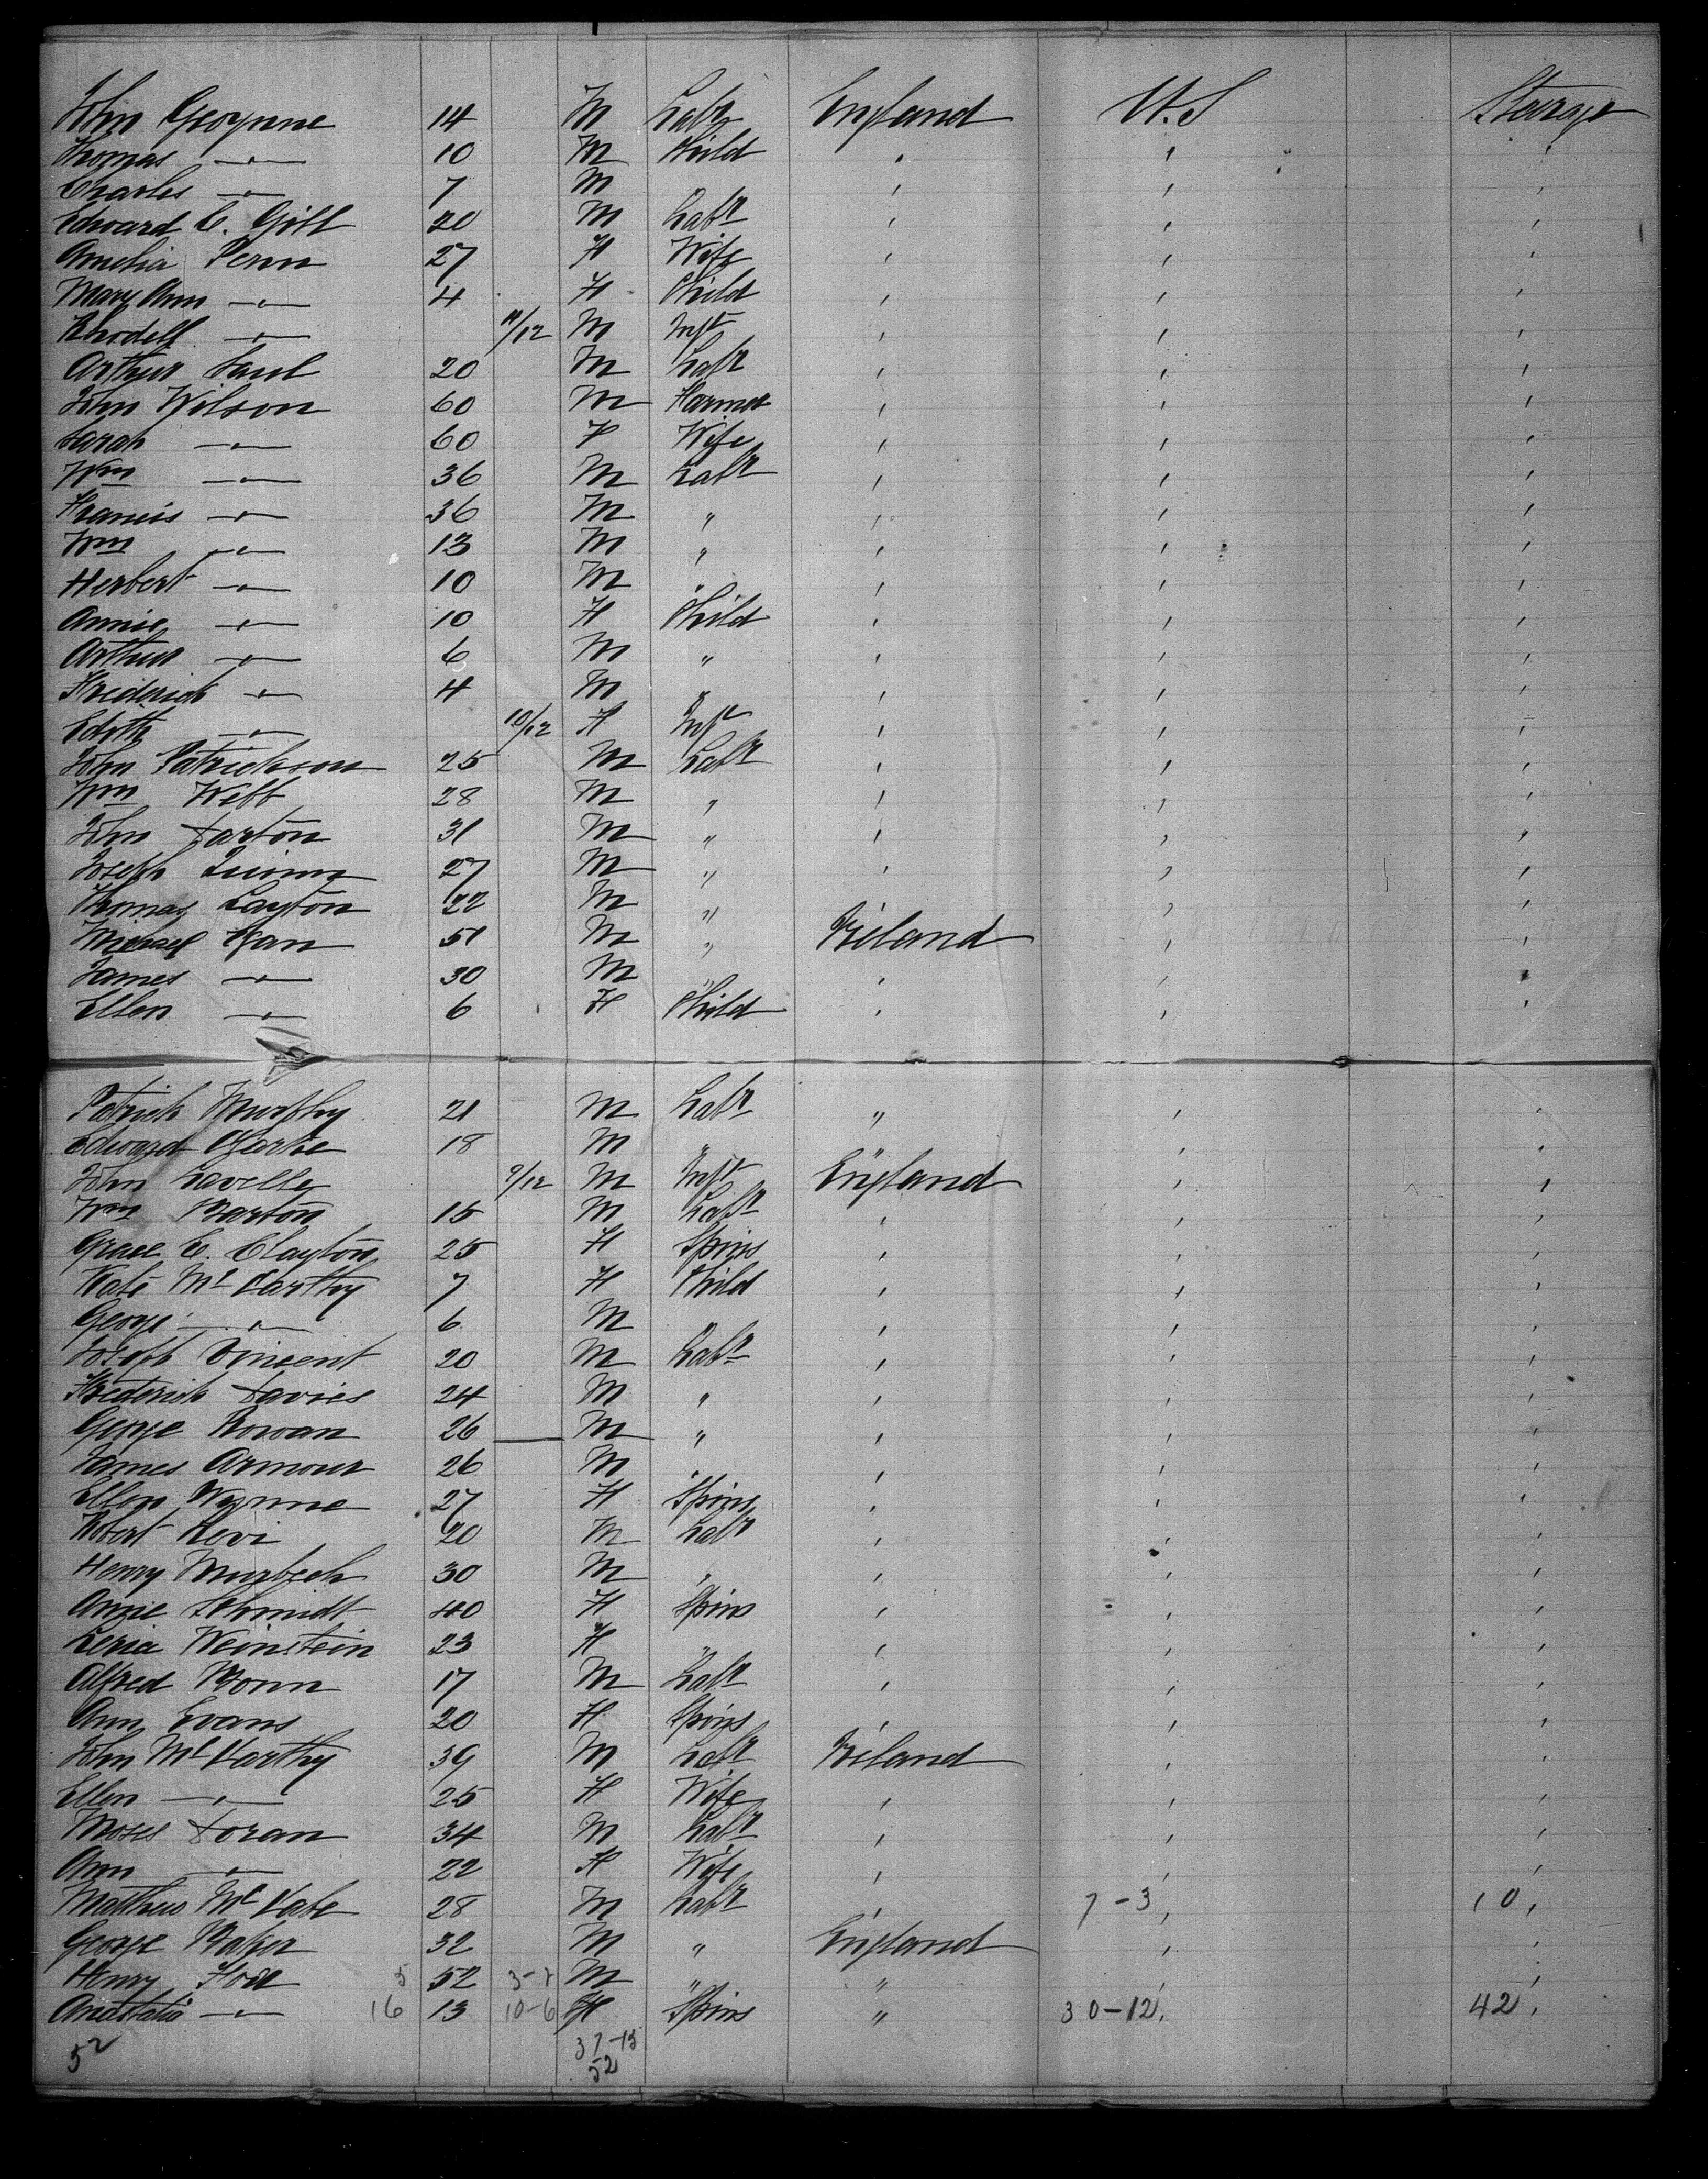 John Geoynne 14 M Labr England U.S Steerage
Thomas —"— 10 M Child " " "
Charles —"— 7 M " " "
Edward C. Gill 20 M Labr " " "
Amelia Penn 27 F Wife " " "
Mary Ann —"— 4 F Child " " "
Rhodell —"— 11/12 M Inft " " "
Arthur Saul 20 M Labr " " "
John Wilson 60 M Farmer " " "
Sarah —"— 60 F Wife " " "
Wm —"— 36 M Labr " " "
Francis —"— 36 M " " " "
Wm —"— 13 M " " " "
Herbert —"— 10 M " " " "
Annie —"— 10 F Child " " "
Arthur —"— 6 M " " " "
Frederick —"— 4 M " " " "
Edith —"— 10/12 F Inft " " "
John Patrickson 25 M Labr " " "
Wm Webb 28 M " " " "
John Darton 31 M " " " "
Joseph Quinn 27 M " " " "
Thomas Layton 22 M " " " "
Michael 51 M " Ireland " "
James —"— 30 M " " " "
Ellen —"— 6 F Child " " "
Patrick Murphy 21 M Labr " " "
Edward 18 M " " "
John Lavelle 9/12 M Inft England " "
Wm Barton 15 M Labr " " "
Grace C. Clayton 25 F Spins " " "
Kate McCarthy 7 F Child " " "
George —"— 6 M " " " "
Joseph Vincent 20 M Labr " " "
Frederick Davies 24 M " " " "
George Rowan 26 — M " " " "
James Armour 26 M " " " "
Ellen Wynne 27 F Spins " " "
Robert Levi 20 M Labr " " "
Henry 30 M " " " "
Annie Schmidt 40 F Spins " " "
Weinstein 23 F " " " "
Alfred Bonn 17 M Labr " " "
Ann Evans 20 F Spins " " "
John McCarthy 39 M Labr Ireland " "
Ellen —"— 25 F Wife " " "
Moses Doran 34 M Labr " " "
Ann —"— 22 F Wife " " "
Matthew McCabe 28 M Labr " 7-3 " 10 "
George Baker 32 M " England " "
Henry 5 52 3-7 M " " " "
Anastatia —"— 16 13 10-6 F Spins " 30-12 " 42 "
52 37-15
52